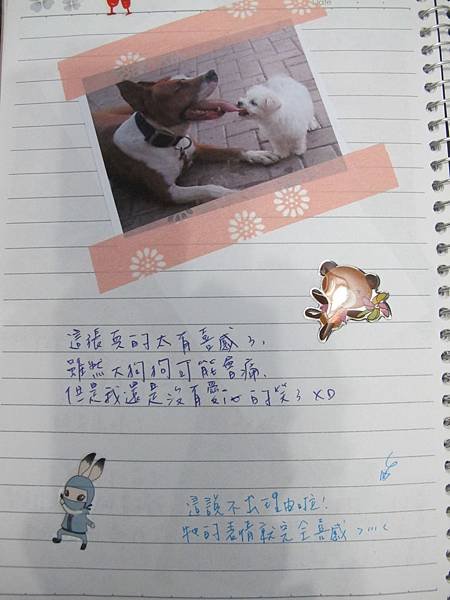 Date
這張真的太有喜感了,
雖然大狗狗可能會痛,
但是我還是沒有愛心的笑了XD
這說不出理由啦!
的表情就完全喜感